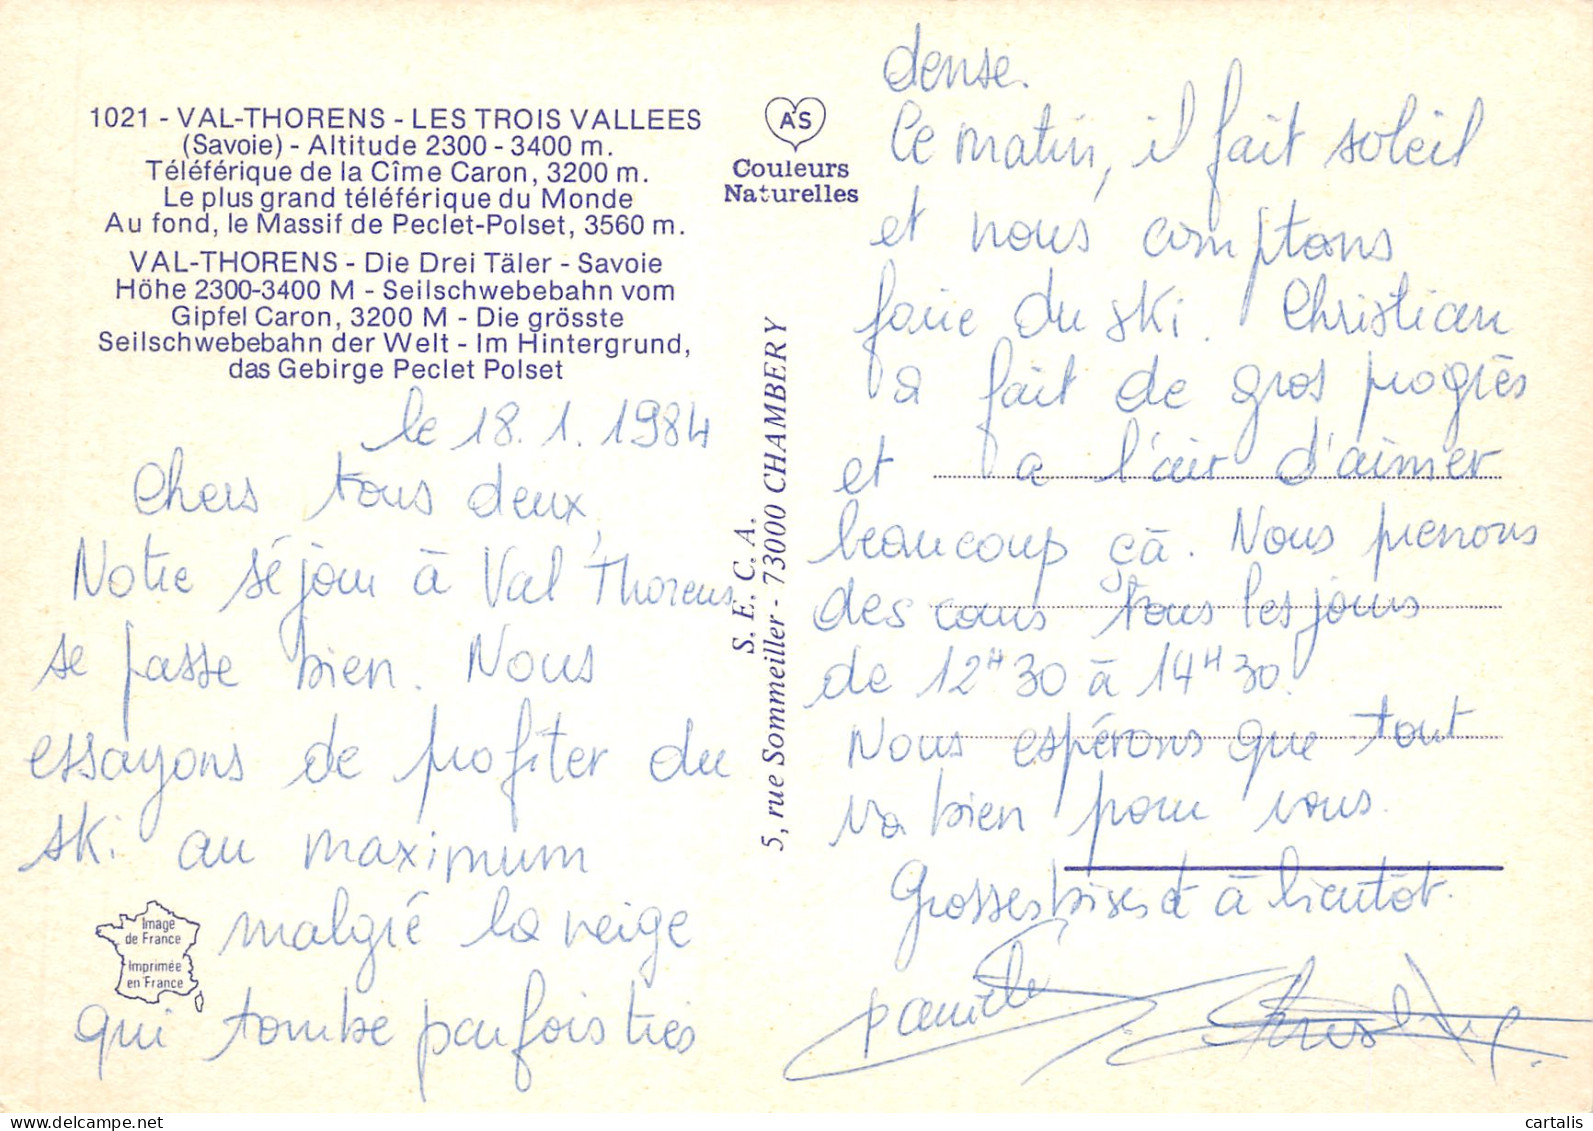 1021 - VAL-THORENS - LES TROIS VALLEES
(Savoie) - Altitude 2300 - 3400 m.
Téléférique de la Cîme Caron, 3200 m.
Le plus grand téléférique du Monde
Au fond, le Massif de Peclet-Polset, 3560 m.
VAL-THORENS - Die Drei Täler - Savoie
Höhe 2300-3400 M - Seilschwebebahn vom
Gipfel Caron, 3200 M - Die grösste
Seilschwebebahn der Welt - Im Hintergrund,
das Gebirge Peclet Polset
le 18.1.1984
Chers tous deux,
Notre séjour à Val Thorens
se passe bien. Nous
essayons de profiter du
ski au maximum
malgré la neige
qui tombe parfois très
Image
de France
Imprimée
en France
AS
Couleurs
Naturelles
S. E. C. A.
5, rue Sommeiller - 73000 CHAMBERY
dense.
Ce matin, il fait soleil
et nous comptons
faire du ski. Christian
a fait de gros progrès
et a l'air d'aimer
beaucoup çà. Nous prenons
des cours tous les jours
de 12H30 à 14H30.
Nous espérons que tout
va bien pour vous.
Grosses bises et à bientôt.
cartalis